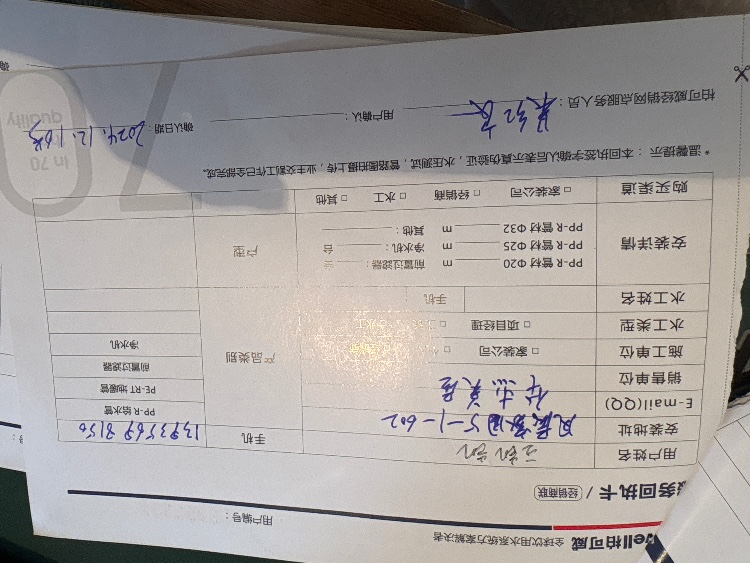 ell柏可威 全球饮用水系统方案解决者
用户编号：
服务回执卡 / 经销商联
用户姓名
手机 13935698156
安装地址 5-1-602
E-mail(QQ)
销售单位
施工单位 □ 家装公司
水工类型 □ 项目经理 □ 水工
水工姓名 手机
产品类别
PP-R 给水管
PE-RT 地暖管
前置过滤器
净水机
安装详情
PP-R 管材 Φ20 m 前置过滤器： 台
PP-R 管材 Φ25 m 净水机： 台
PP-R 管材 Φ32 m 其他：
户型
购买渠道 □ 家装公司 □ 经销商 □ 水工 □ 其他
* 温馨提示：本回执签字确认后表示真伪验证，水压测试，管路图拍摄上传，业主交割工作已全部完成。
柏可威经销网点服务人员： 用户确认： 确认日期：2024.12.16号
In 70
quality
70